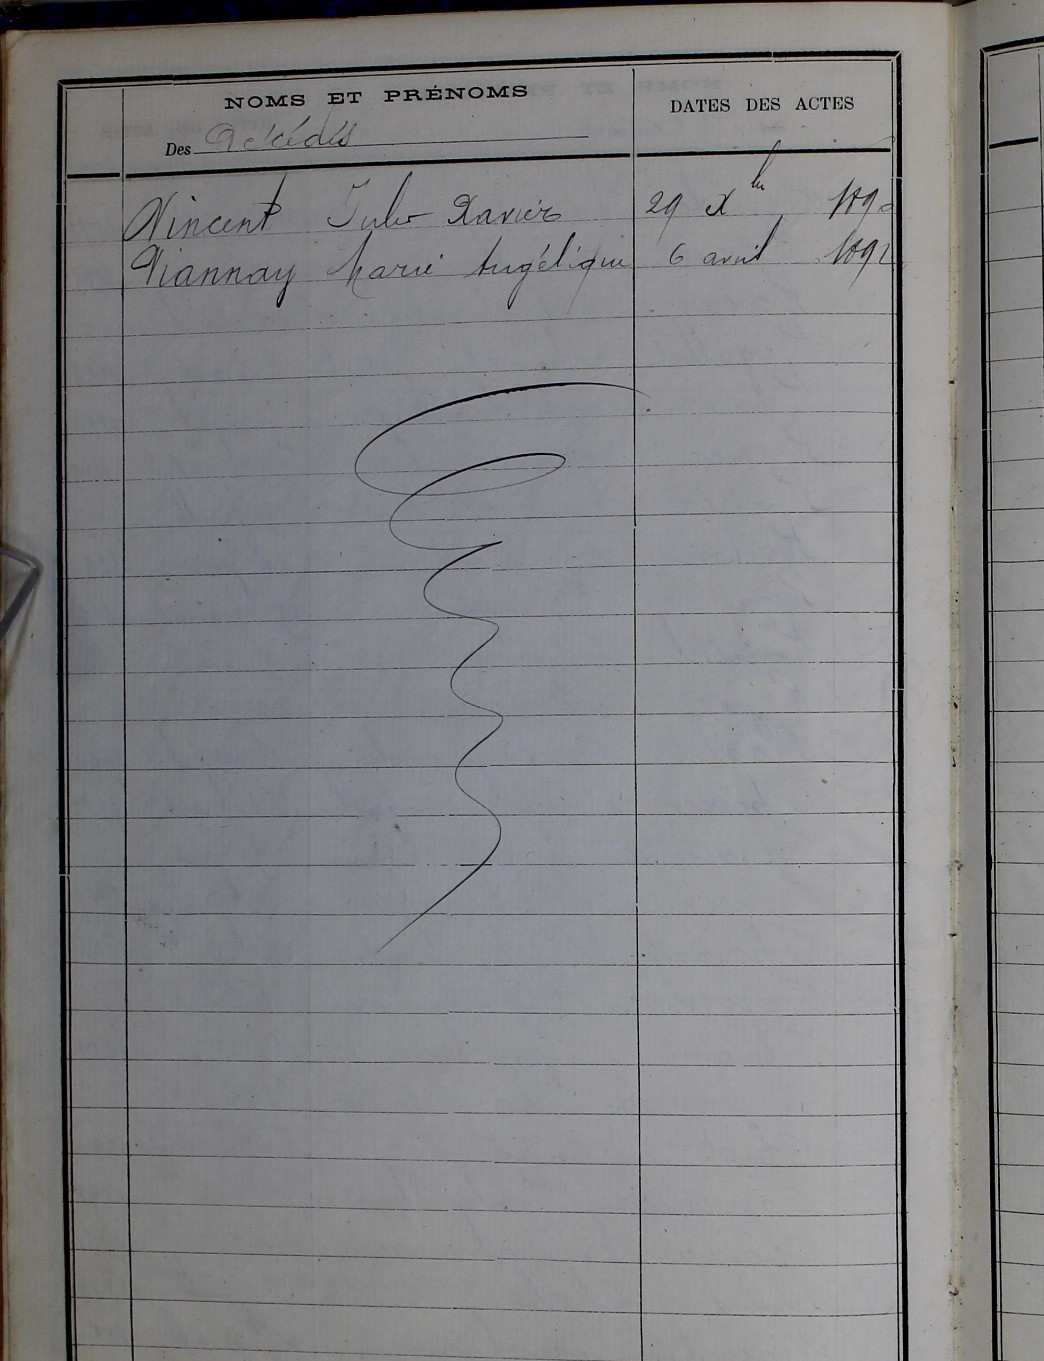 NOMS ET PRÉNOMS
DATES DES ACTES
Des Décédés
Vincent Jules Xavier 29 Xbre
Viannay Marie Angélique 6 avril